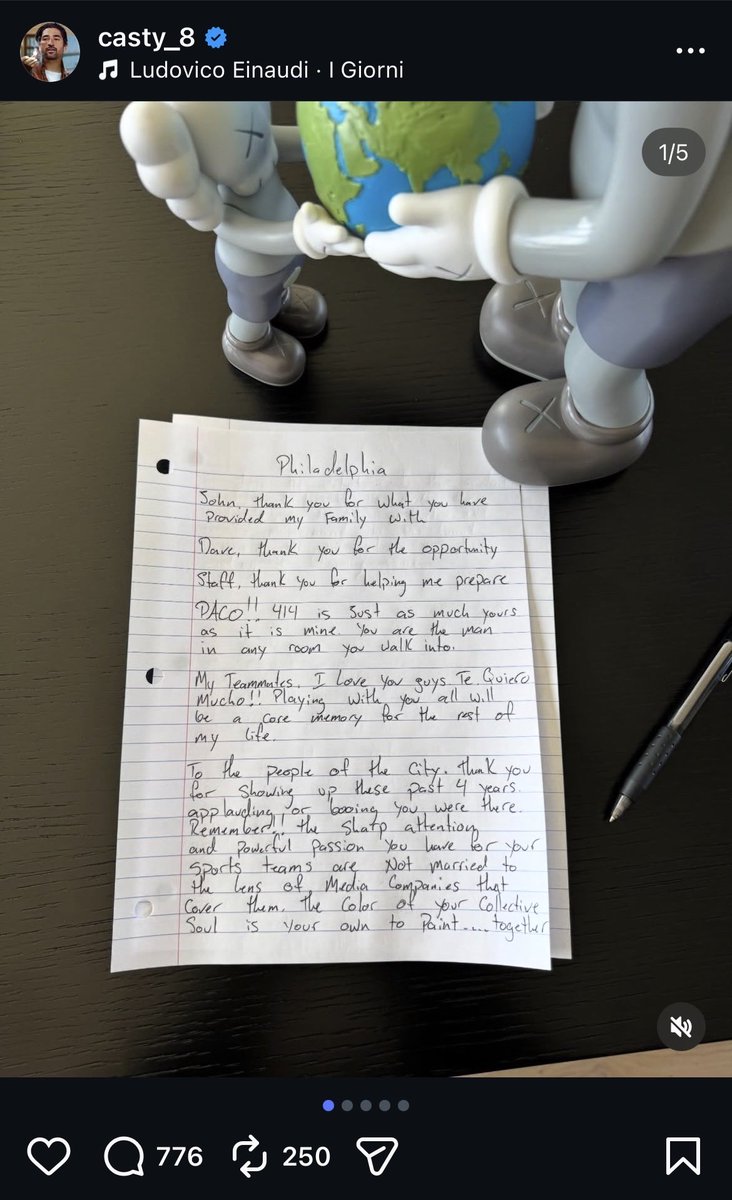 casty_8
Ludovico Einaudi · I Giorni
1/5
Philadelphia
John, thank you for what you have
provided my Family with
Dave, thank you for the opportunity
Staff, thank you for helping me prepare
PACO!! 414 is Just as much yours
as it is mine. You are the man
in any room you walk into.
My Teammates. I Love you guys. Te Quiero
Mucho!! Playing with you all will
be a core memory for the rest of
my life.
To the people of the City. Thank you
for showing up these past 4 years.
applauding or booing you were there.
Remember!! the sharp attention
and powerful passion you have for your
sports teams are Not married to
the lens of Media Companies that
cover them. the color of your Collective
Soul is your own to Paint....together
776
250